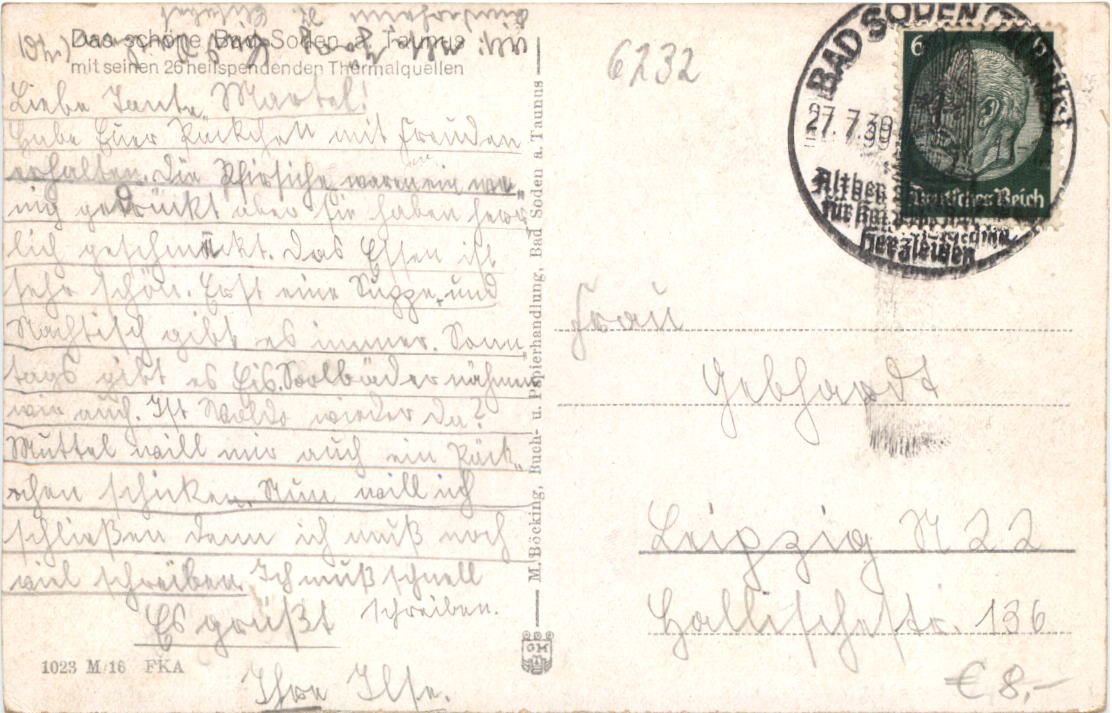 Das schöne Bad Soden a. Taunus
mit seinen 26 heilspendenden Thermalquellen
Liebe Tante Martel!
Habe Euer Päckchen mit Freuden
erhalten. Die Pfirsiche waren ein we-
nig gedrückt aber sie haben herr-
lich geschmeckt. Das Essen ist
sehr schön. Erst eine Suppe und
Nachtisch gibt es immer. Sonn
tags gibt es Eis. Soolbäder nähmen
wir auch. Ist wieder da?
Muttel will mir auch ein Päck-
chen schicken. Nun will ich
schließen denn ich muß noch
viel schreiben. Ich muß schnell
schreiben.
Es grüßt
Ihre Ilse.
1023 M/16 FKA
M. Böcking, Buch- u. Papierhandlung, Bad Soden a. Taunus
6232
BAD SODEN
27.7.39
Herzleiden
6
Deutsches Reich
Frau
Gebhardt
Leipzig N 22
Hallischestr. 136
€ 8,-